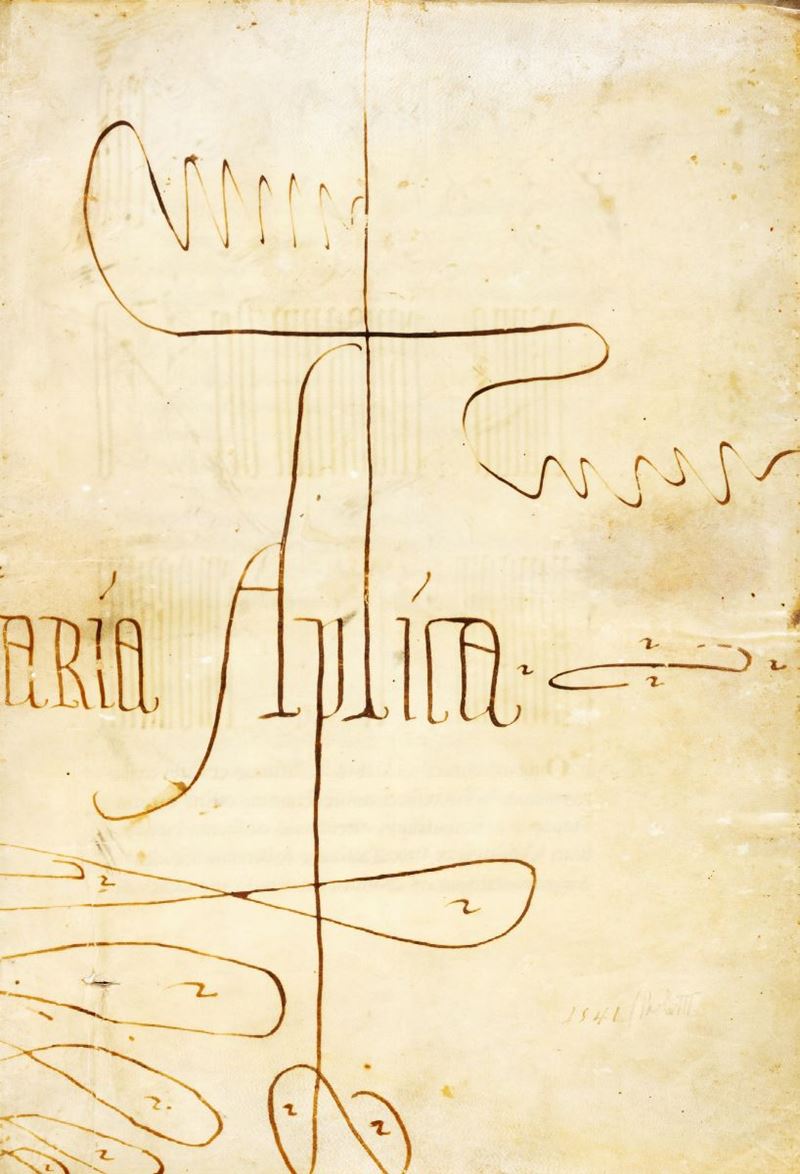 ARíA Aplíca
1541